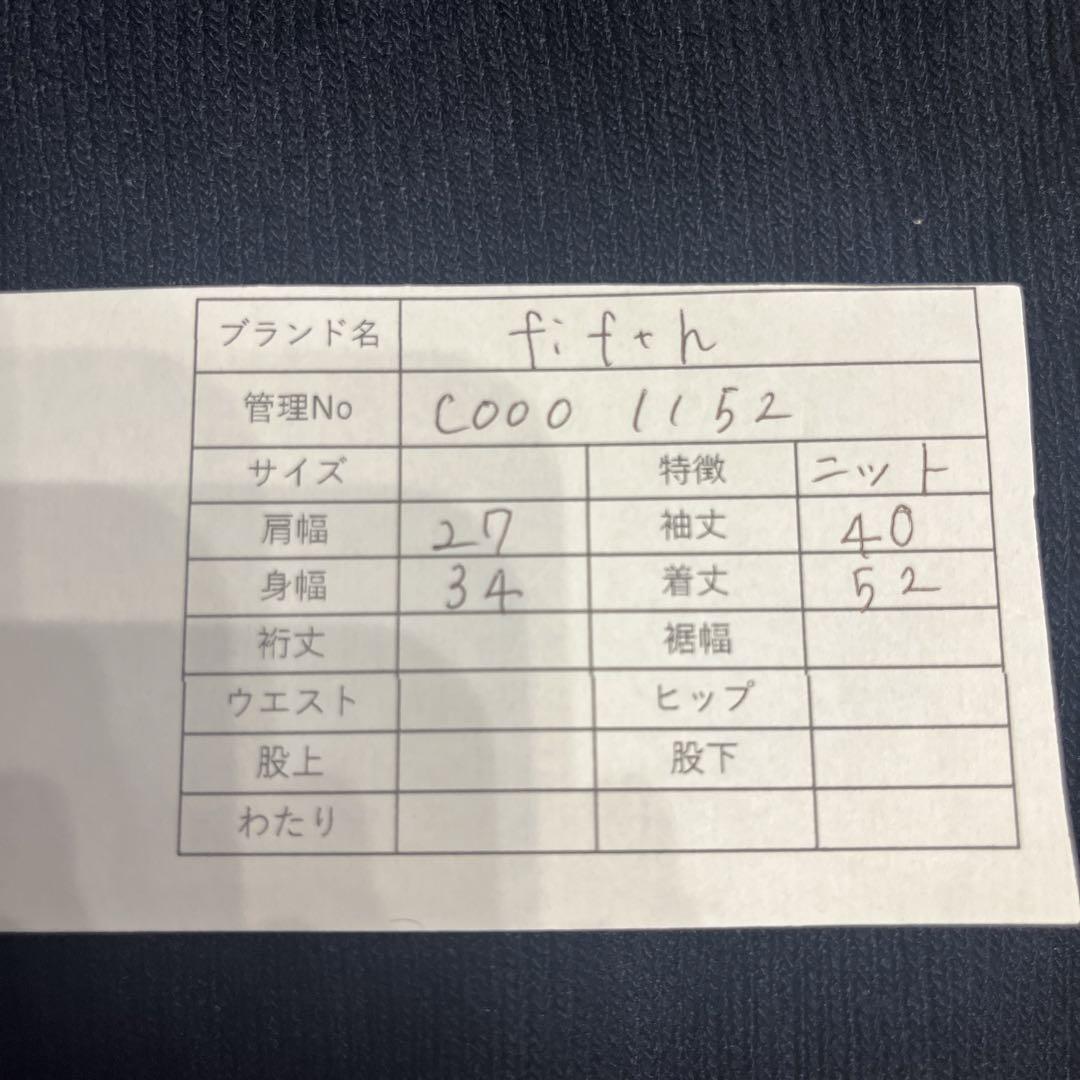 ブランド名 fifth
管理No C000 1152
サイズ 特徴 ニット
肩幅 27 袖丈 40
身幅 34 着丈 52
裄丈 裾幅
ウエスト ヒップ
股上 股下
わたり